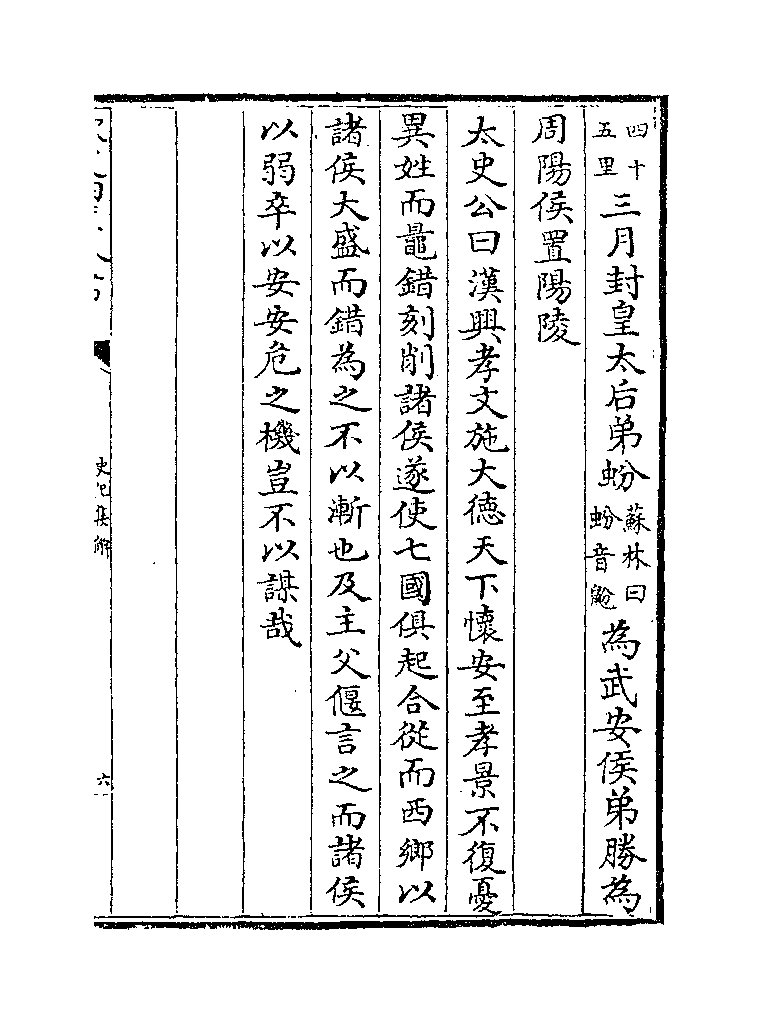 四十五里三月封皇太后弟蚡蘇林曰蚡音鼢為武安侯弟勝為
周陽侯置陽陵
太史公曰漢興孝文施大德天下懷安至孝景不復憂
異姓而鼂錯刻削諸侯遂使七國俱起合從而西鄉以
諸侯大盛而錯為之不以漸也及主父偃言之而諸侯
以弱卒以安安危之機豈不以謀哉
史記集解
六